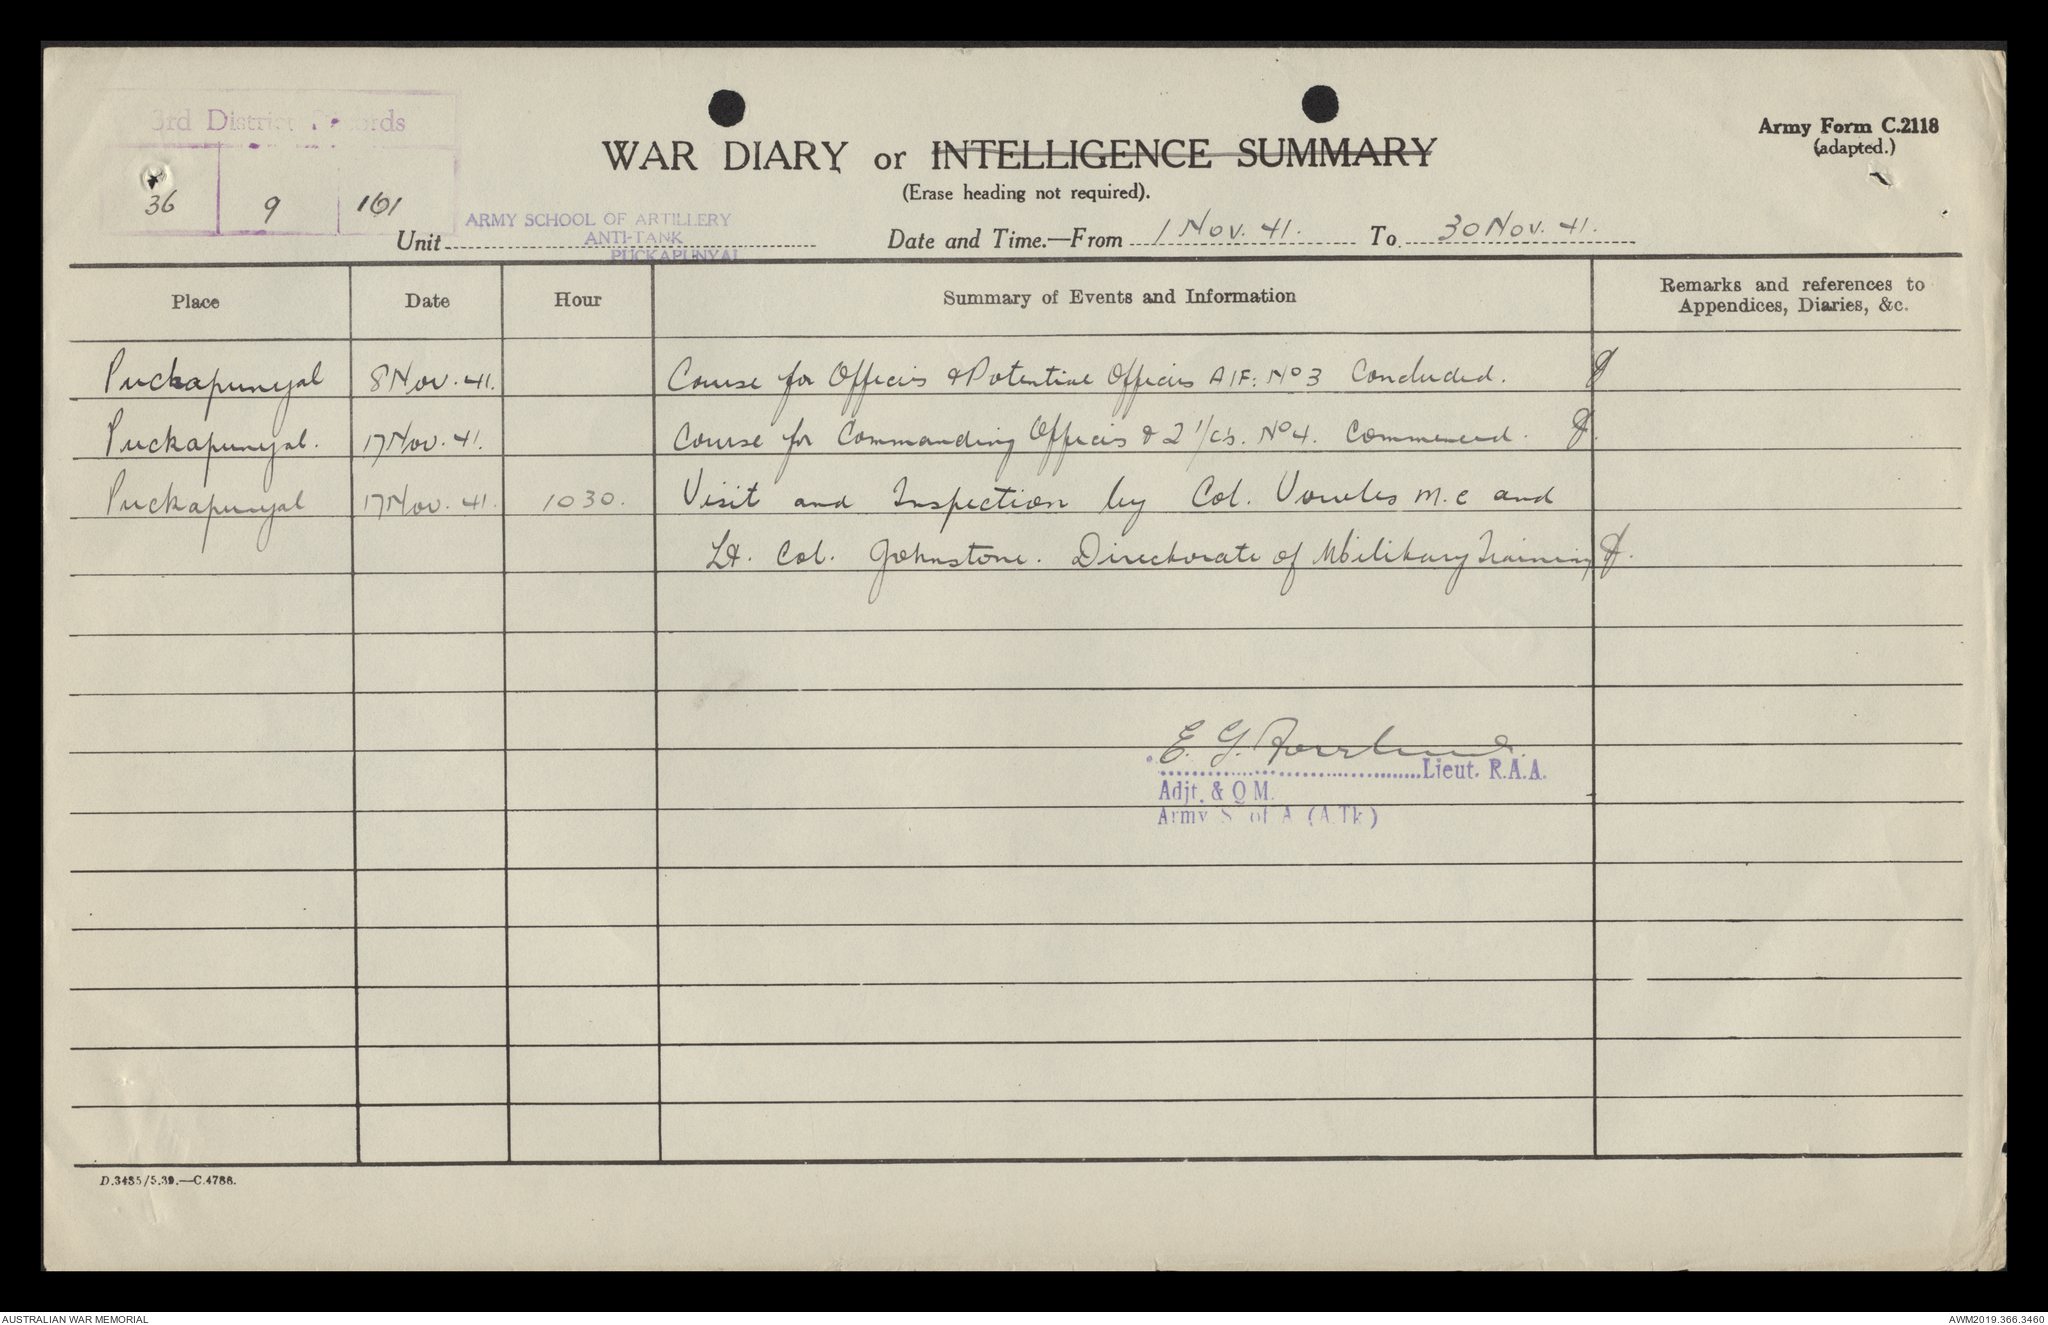 3rd District Records
36 9 161
WAR DIARY or INTELLIGENCE SUMMARY
(Erase heading not required).
Army Form C.2118
(adapted.)
ARMY SCHOOL OF ARTILLERY
ANTI-TANK
PUCKAPUNYAL
Unit
Date and Time.—From 1 Nov. 41. To 30 Nov. 41.
Place Date Hour Summary of Events and Information Remarks and references to
Appendices, Diaries, &c.
Puckapunyal 8 Nov. 41. Course for Officers & Potential Officers AIF: No 3 Concluded.
Puckapunyal. 17 Nov. 41. Course for Commanding Officers & 2 I/Cs. No 4. Commenced.
Puckapunyal 17 Nov. 41. 1030. Visit and Inspection by Col. Vowles M.C and
Lt. Col. Johnstone. Directorate of Military Training
E. G.
Lieut. R.A.A.
Adjt. & Q M.
Army S. of A (A.Tk)
D.3485/5.39.—C.4786.
AUSTRALIAN WAR MEMORIAL
AWM2019.366.3460